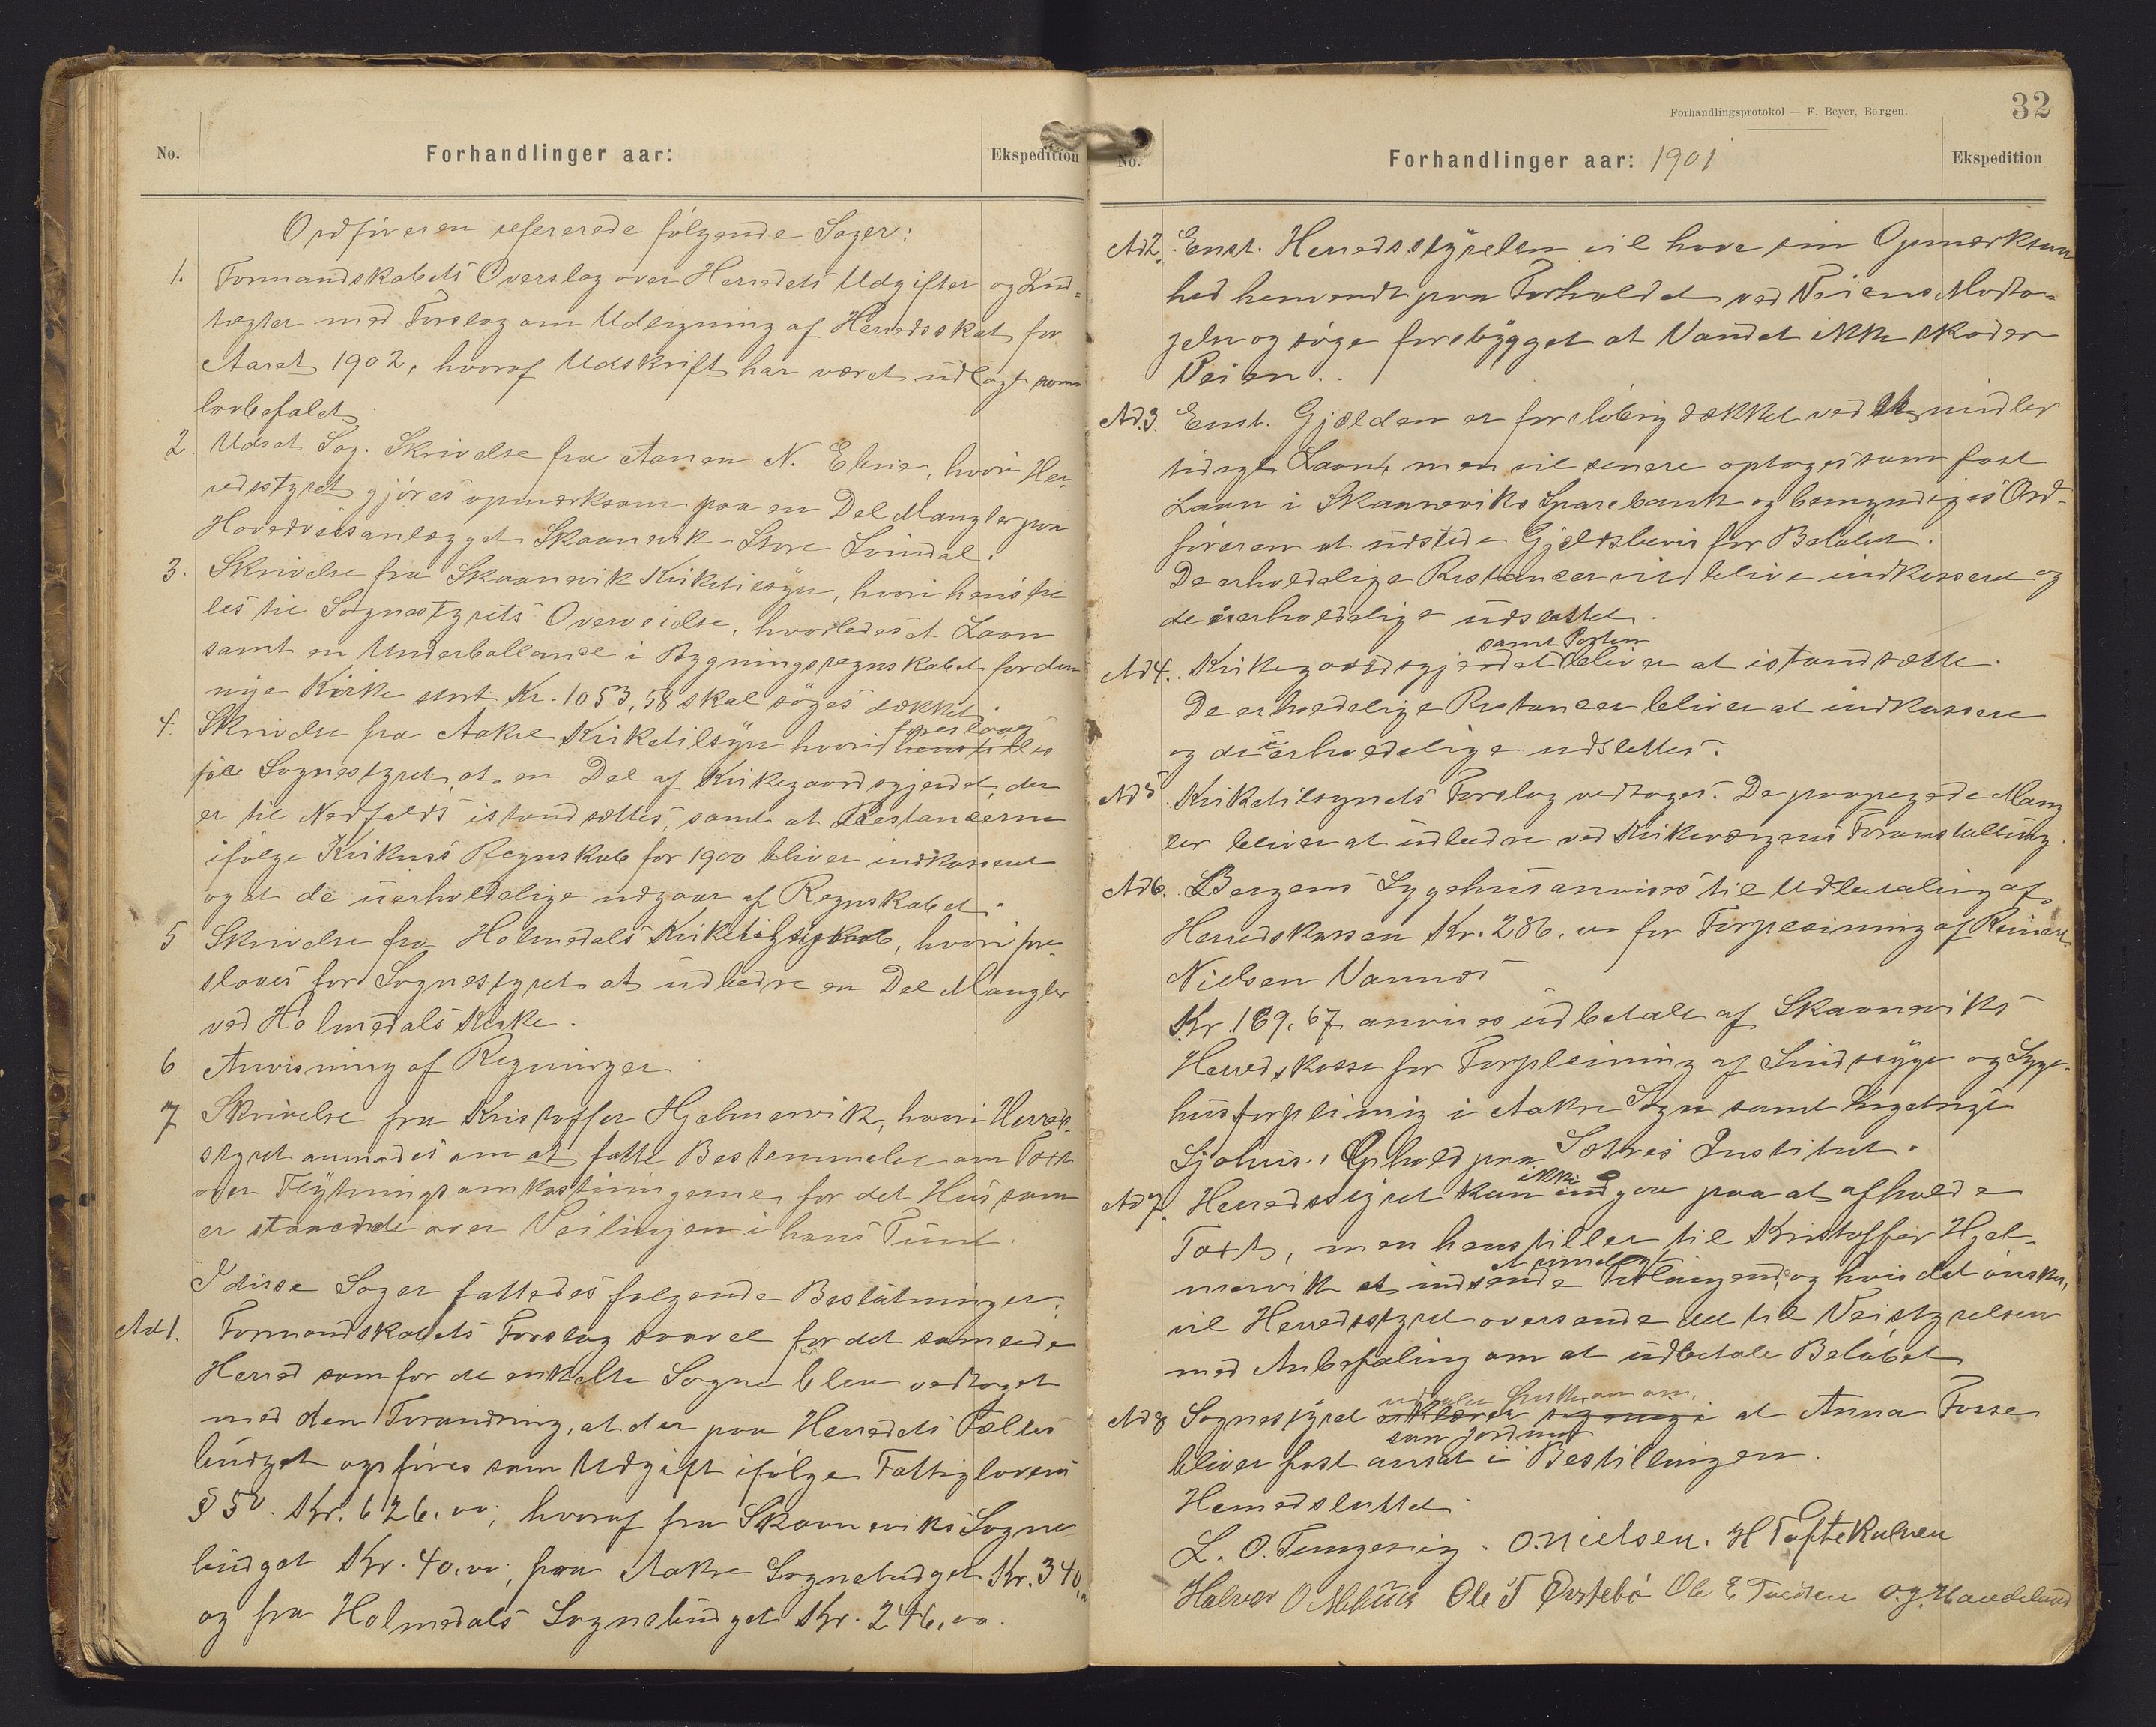 No.
Forhandlinger aar:
Ekspedition
Ordføreren refererede følgende Sager:
1. Formandskabets Overslag over Herredets Udgifter og Ind-
tægter med Forslag om Udligning af Herredsskat for
Aaret 1902, hvoraf Udskrift har været udlagt som
lovbefalet.
2. Udsat Sag. Skrivelse fra Aanen N. Ebne, hvori Her-
redsstyret gjøres opmærksom paa en Del Mangler paa
Hovedveisanlægget Skaanevik - Store Svindal.
3. Skrivelse fra Skaanevik Kirketilsyn, hvori henstil
les til Sognestyrets Overveielse, hvorledes et Laan
samt en Underballance i Bygningsregnskabet for den
nye Kirke stort Kr. 1053,58 skal søges dækket.
4. Skrivelse fra Aakre Kirketilsyn hvori foreslaaes henstilles
for Sognestyret, at en Del af Kirkegaardsgjerdet, der
er til Nedfalds istandsættes, samt at Restancerne
ifølge Kirkens Regnskab for 1900 bliver indkasseret
og at de uerholdelige udgaar af Regnskabet.
5 Skrivelse fra Holmedals Kirketilsyn, hvori fore-
slaaes for Sognestyret at udbedre en Del Mangler
ved Holmedals Kirke.
6 Anvisning af Regninger.
7 Skrivelse fra Kristoffer Hjelmervik, hvori Herreds-
styret anmodes om at fatte Bestemmelse om Taxt
over Flytningsomkostningerne for det Hus som
er staaende over Veilinjen i hans Tunt.
I disse Sager fattedes følgende Beslutninger:
Ad 1. Formandskabets Forslag saavel for det samlede
Herred som for de enkelte Sogne blev vedtaget
med den Forandring, at der paa Herredets Fælles
budget opføres som Udgift ifølge Fattiglovens
§ 50. Kr. 626,00, hvoraf fra Skaaneviks Sogne
budget Kr. 40,00, fra Aakre Sognebudget Kr. 340,00
og fra Holmedals Sognebudget Kr. 246,00.
Forhandlingsprotokol — F. Beyer, Bergen.
32
No.
Forhandlinger aar: 1901
Ekspedition
Ad 2. Enst. Herredsstyrelsen vil have sin Opmærksom
hed henvendt paa Forholdet ved Veiens Modta-
gelse og søge forebygget at Vandet ikke skader
Veien.
Ad. 3. Enst. Gjælden er foreløbig dækket ved midler
tidigt Laan, men vil senere optages som fast
Laan i Skaaneviks Sparebank og bemyndiges Ord-
føreren at udstede Gjældsbevis for Beløbet.
De erholdelige Restancer vil blive indkasseret og
de uerholdelige udslettet.
Ad 4. Kirkegaardsgjerdet samt Porten bliver at istandsætte.
De erholdelige Restancer bliver at indkassere
og de uerholdelige udslettes.
Ad 5. Kirketilsynets Forslag vedtages. De paapegede Mang
ler bliver at udbedre ved Kirkeværgens Foranstaltning.
Ad 6. Bergens Sygehus anvises til Udbetaling af
Herredskassen Kr. 286,00 for Forpleining af
Nielsen Vannes
Kr. 169,67 anvises udbetalt af Skaaneviks
Herredskasse for Forpleining af Sindssyge og Syge-
husforpleining i Aakre Sogn samt
Ophold paa Institut.
Ad 7. Herredsstyret kan ikke indgaa paa at afholde
Taxt, men henstiller til Kristoffer Hjel-
mervik at indsende et rimeligt Forlangende, og hvis det ønskes,
vil Herredsstyret oversende det til Veistyrelsen
med Anbefaling om at udbetale Beløbet
Ad 8 Sognestyret udtaler om, at Anna Fosse
bliver fast ansat som Jordmor i Bestillingen.
Hermed sluttet.
L. O. Tungesvig. O. Nielsen. H Toftekalven
Halvor O Milhus Ole T Ørstebø Ole E O. J. Haaheland